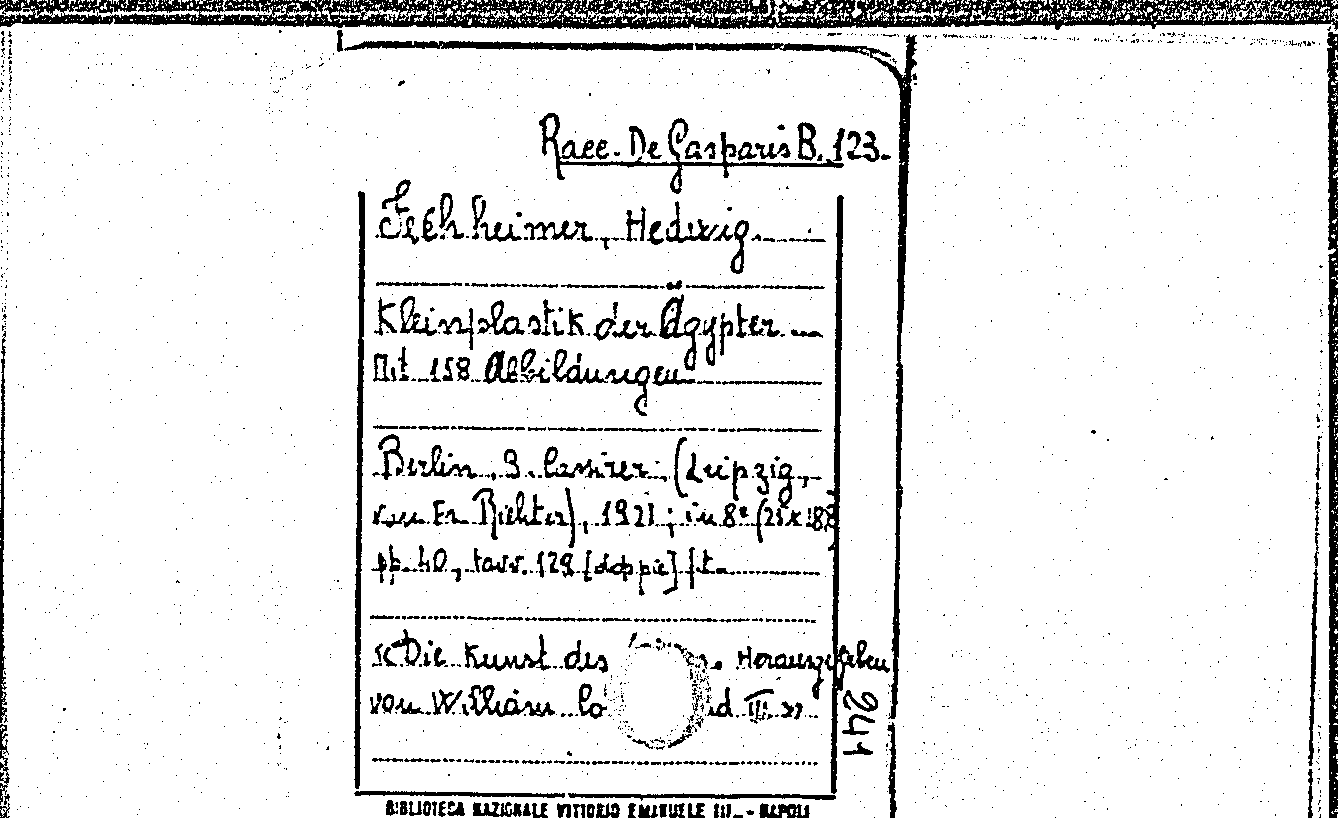 Racc. De Gasparis B. 123.
Fechheimer, Hedwig.
Kleinplastik der Ägypter
Mit 158 Abbildungen
Berlin, B. Cassirer (Leipzig,
von Er. Richter), 1921; in 8° (25 x
pp. 40, tavv. 129 [doppie] f.t.
«Die Kunst des Herausgegeben
von William III»
241
BIBLIOTECA NAZIONALE VITTORIO EMANUELE III - NAPOLI